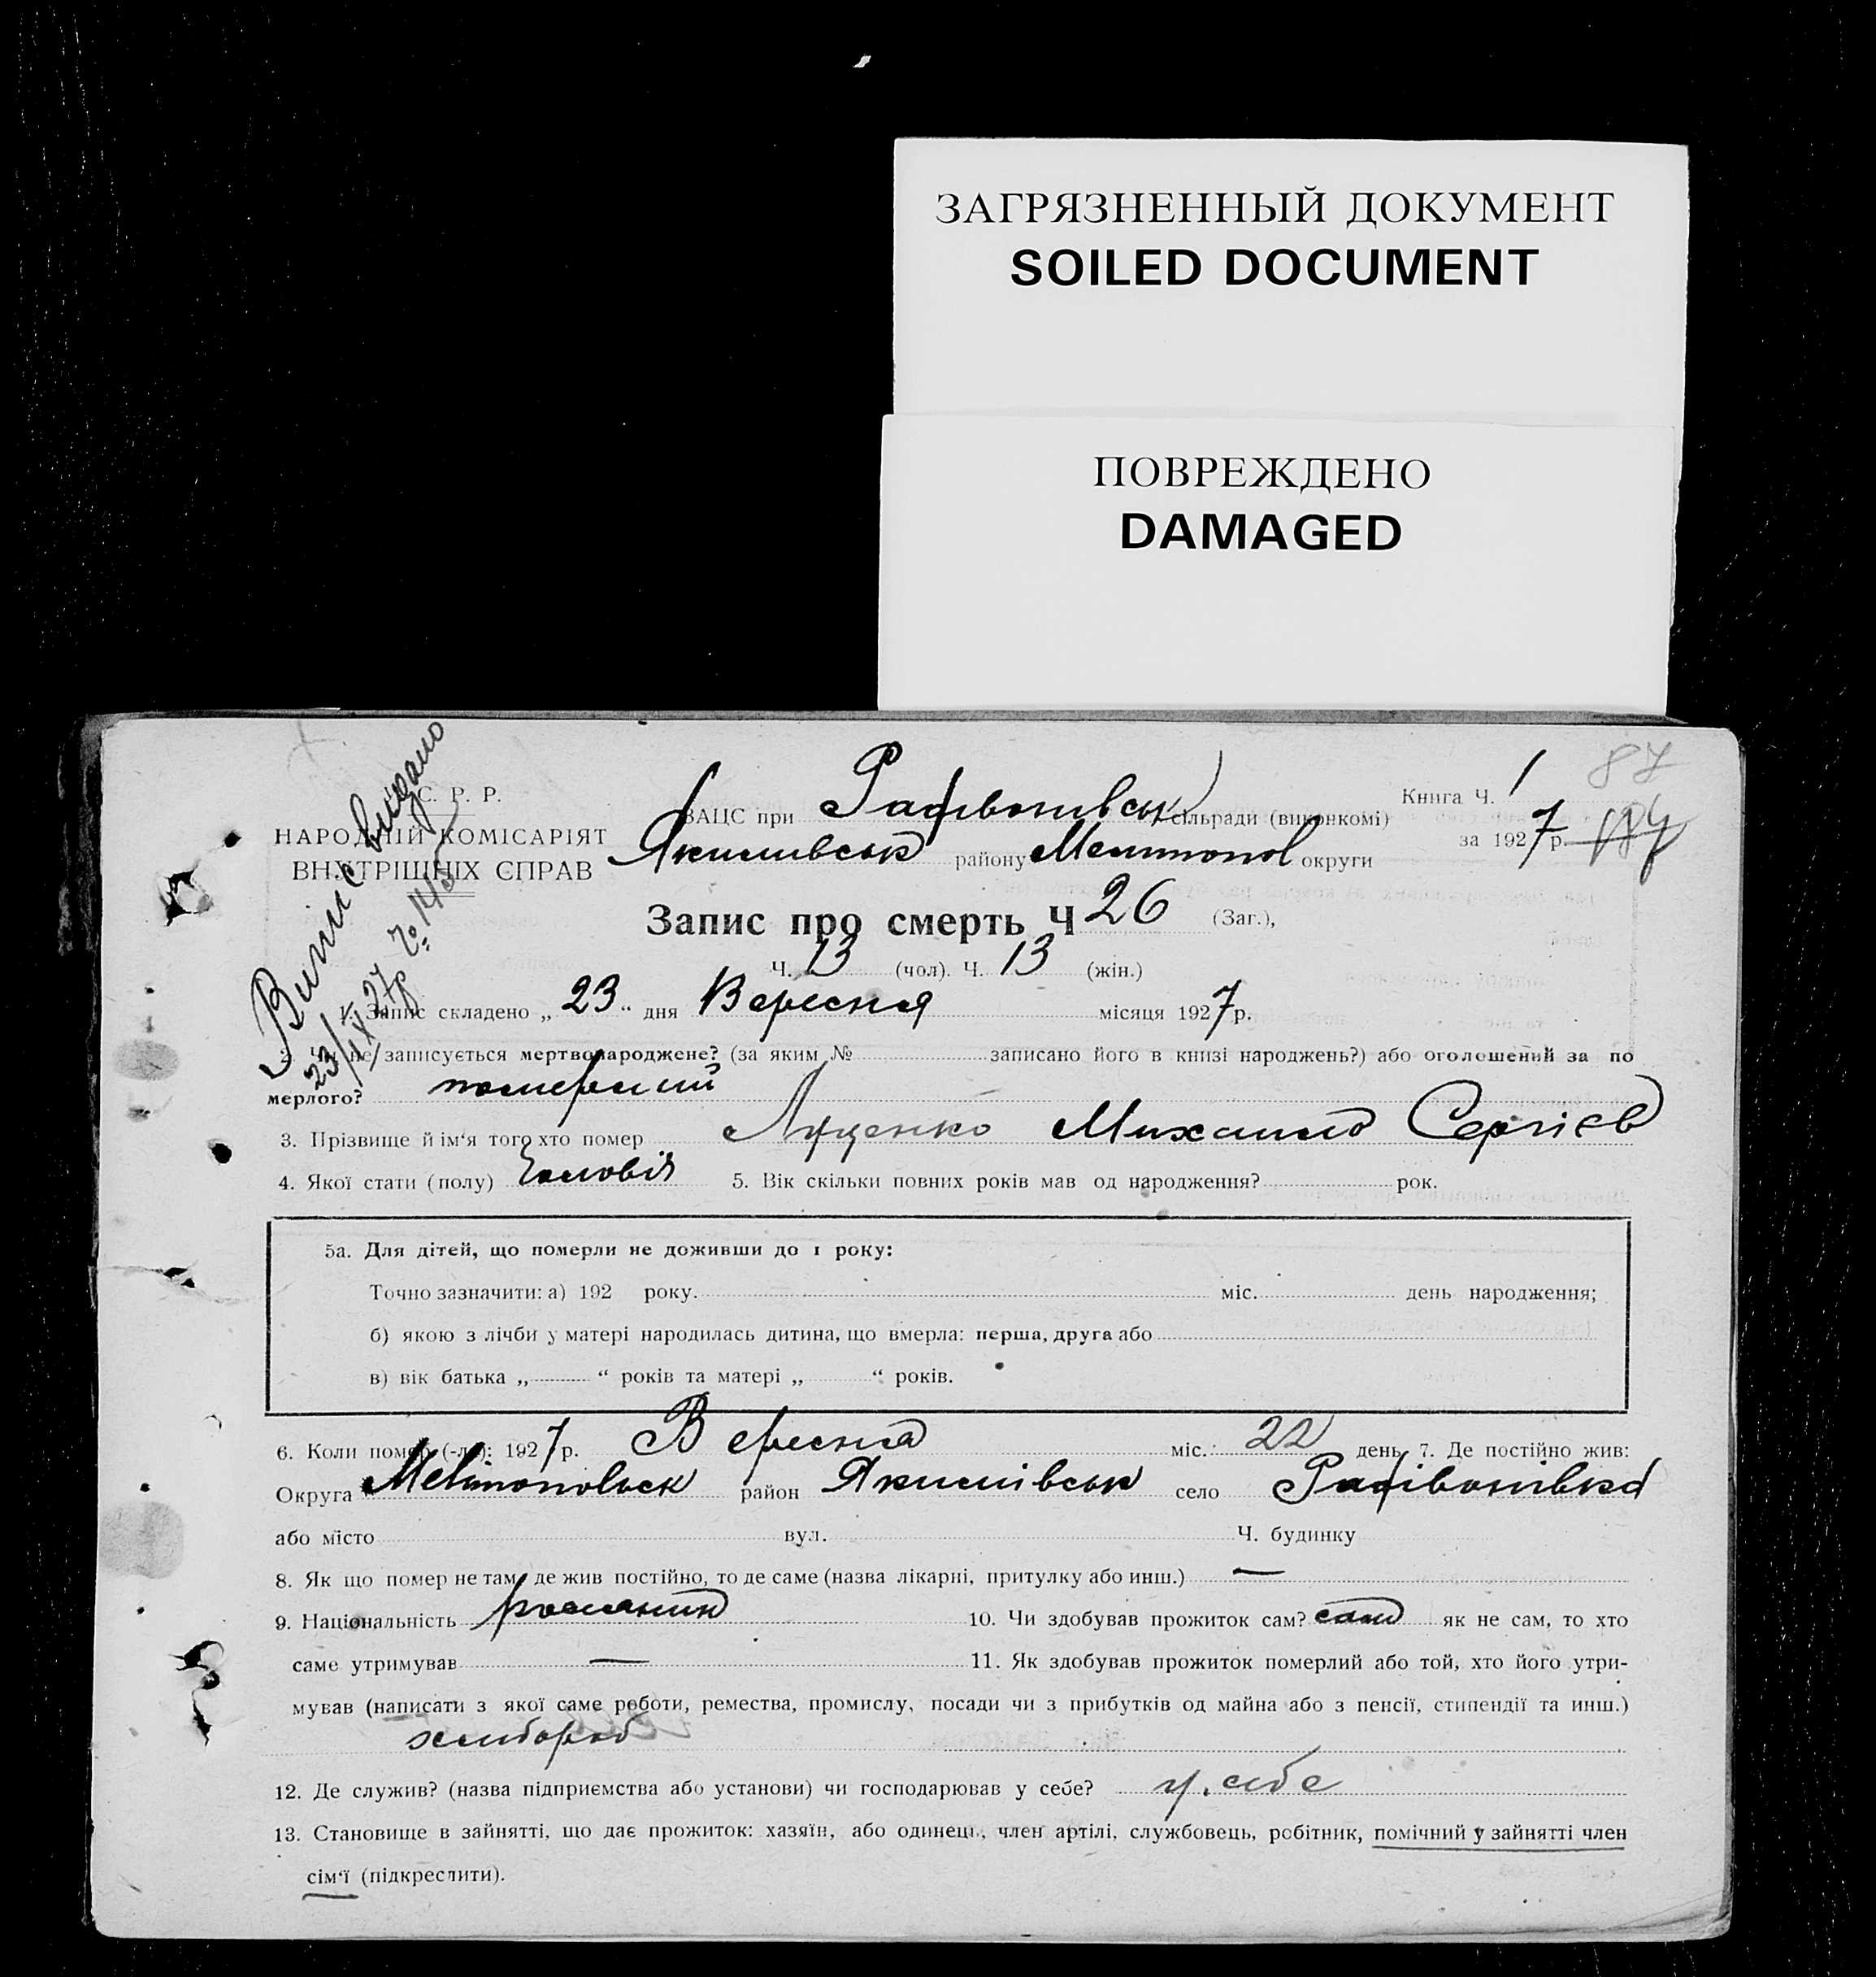 ЗАГРЯЗНЕННЫЙ ДОКУМЕНТ
SOILED DOCUMENT
ПОВРЕЖДЕНО
DAMAGED
Випис видано
23/IX 27р № 145
87
С. Р. Р.
НАРОДНІЙ КОМІСАРІЯТ
ВНУТРІШНІХ СПРАВ
ЗАЦС при Радівонівськ сільради (виконкомі)
Якимівськ району Мелитопол округи
Книга Ч. 1
за 1927 р.
Запис про смерть Ч 26 (Заг.),
Ч. 13 (чол). Ч. 13 (жін.)
1. Запис складено „ 23 “ дня Вересня місяця 1927 р.
2. Чи не записується мертвонароджене? (за яким № записано його в книзі народжень?) або оголошений за по
мерлого? померший
3. Прізвище й ім‘я того хто помер Луценко Михайло Сергієв
4. Якої стати (полу) Чоловія 5. Вік скільки повних років мав од народження? рок.
5а. Для дітей, що померли не доживши до 1 року:
Точно зазначити: а) 192 року. міс. день народження;
б) якою з лічби у матері народилась дитина, що вмерла: перша, друга або
в) вік батька „ “ років та матері „ “ років.
6. Коли помер (-ла): 1927 р. Вересня міс. 22 день 7. Де постійно жив:
Округа Мелітопольск район Якимівськ село Радівонівка
або місто вул. Ч. будинку
8. Як що помер не там, де жив постійно, то де саме (назва лікарні, притулку або инш.) —
9. Національність 10. Чи здобував прожиток сам? сам як не сам, то хто
саме утримував — 11. Як здобував прожиток померлий або той, хто його утри-
мував (написати з якої саме роботи, ремества, промислу, посади чи з прибутків од майна або з пенсії, стипендії та инш.)
хлибороб
12. Де служив? (назва підприємства або установи) чи господарював у себе? у себе
13. Становище в зайнятті, що дає прожиток: хазяїн, або одинець, член артілі, службовець, робітник, помічний у зайнятті член
сім‘ї (підкреслити).